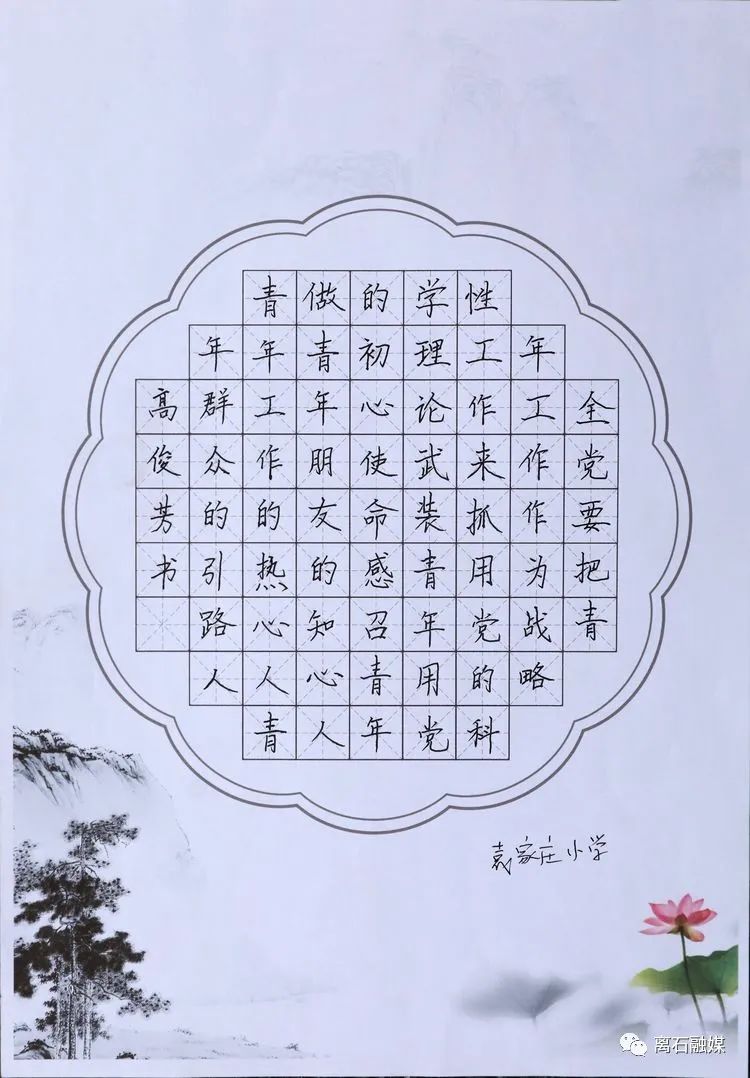 全党要把青
年工作作为战略
性工作来抓用党的科
学理论武装青年用党
的初心使命感召青年
做青年朋友的知心人
青年工作的热心人青
年群众的引路人
高俊芳书
袁家庄小学
离石融媒